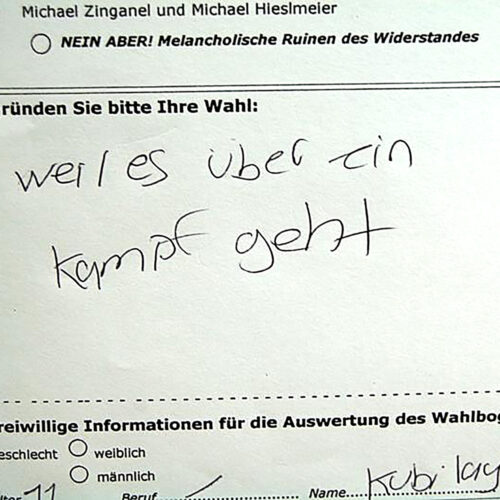 Michael Zinganel und Michael Hieslmeier
NEIN ABER! Melancholische Ruinen des Widerstandes
ründen Sie bitte Ihre Wahl:
weil es über ein
kampf geht
reiwillige Informationen für die Auswertung des Wahlbog
eschlecht weiblich
männlich
lter 11 Beruf Name Kubilay